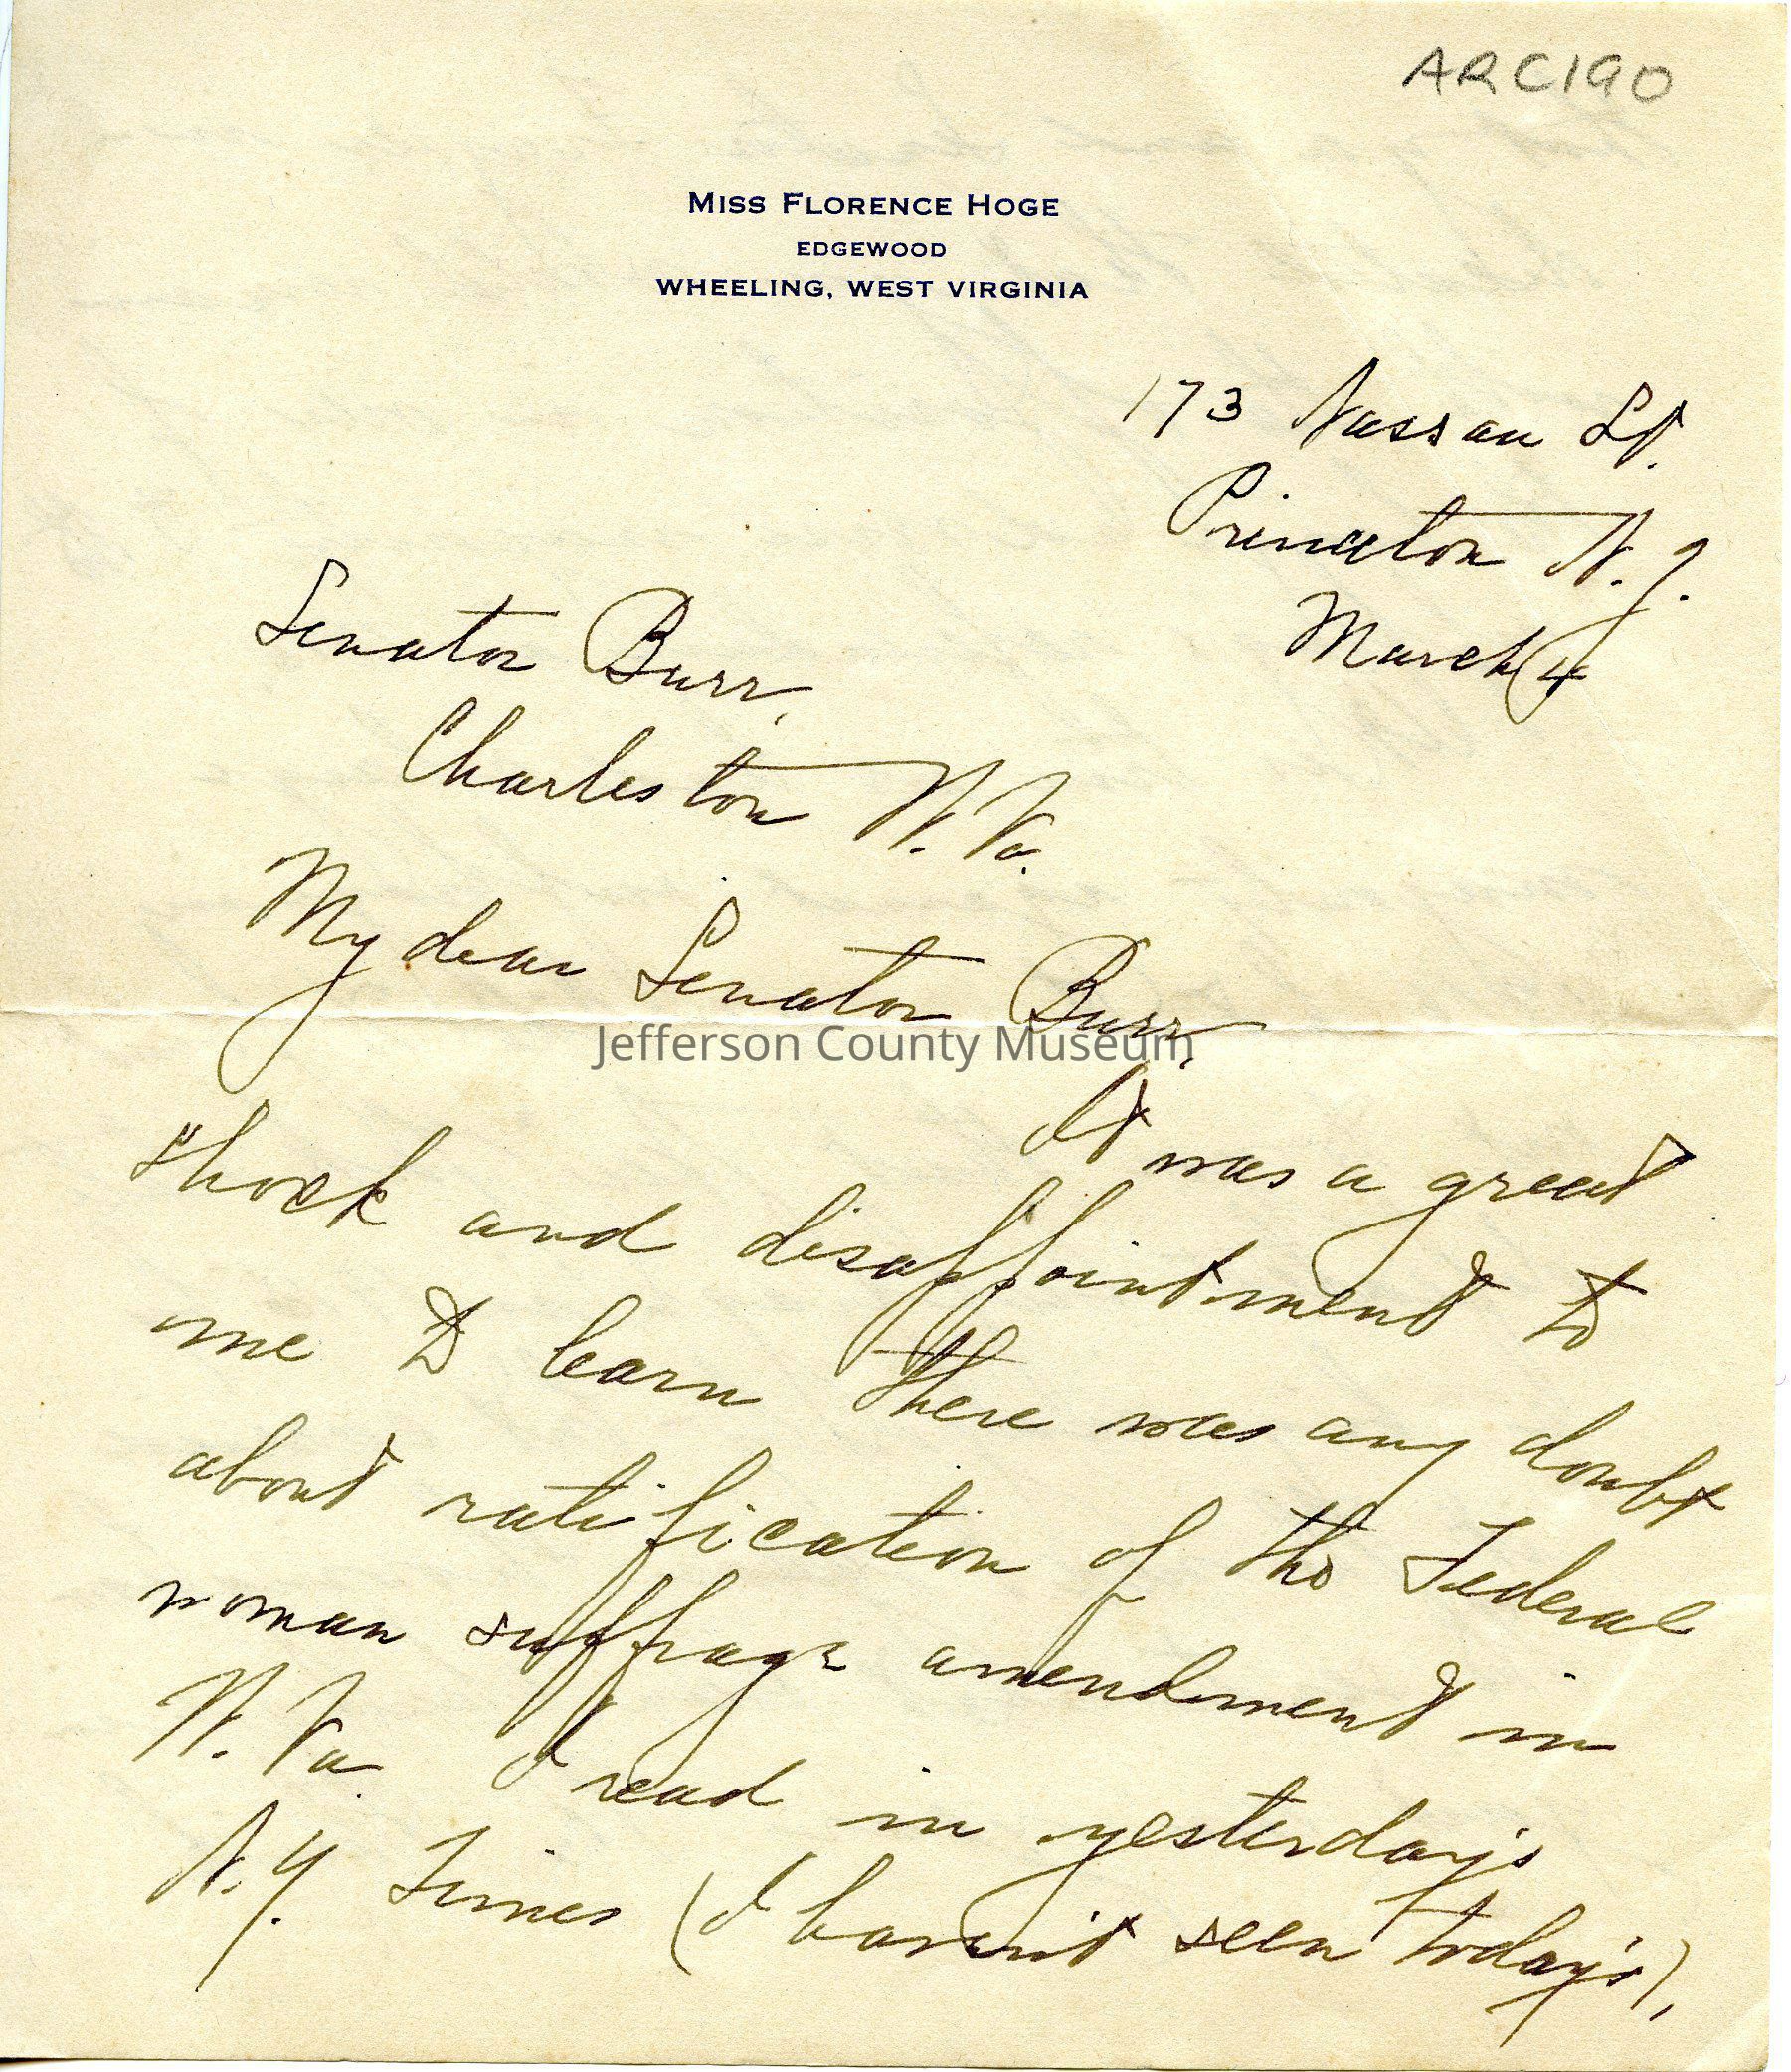 ARC190
MISS FLORENCE HOGE
EDGEWOOD
WHEELING, WEST VIRGINIA
173 Nassau St.
Princeton N.J.
March 4
Senator Burr,
Charleston W. Va.
My dear Senator Burr,
Jefferson County Museum
It was a great
shock and disappointment to
me to learn there was any doubt
about ratification of the Federal
woman suffrage amendment in
W. Va. I read in yesterday's
N.Y. Times (I haven't seen today's),